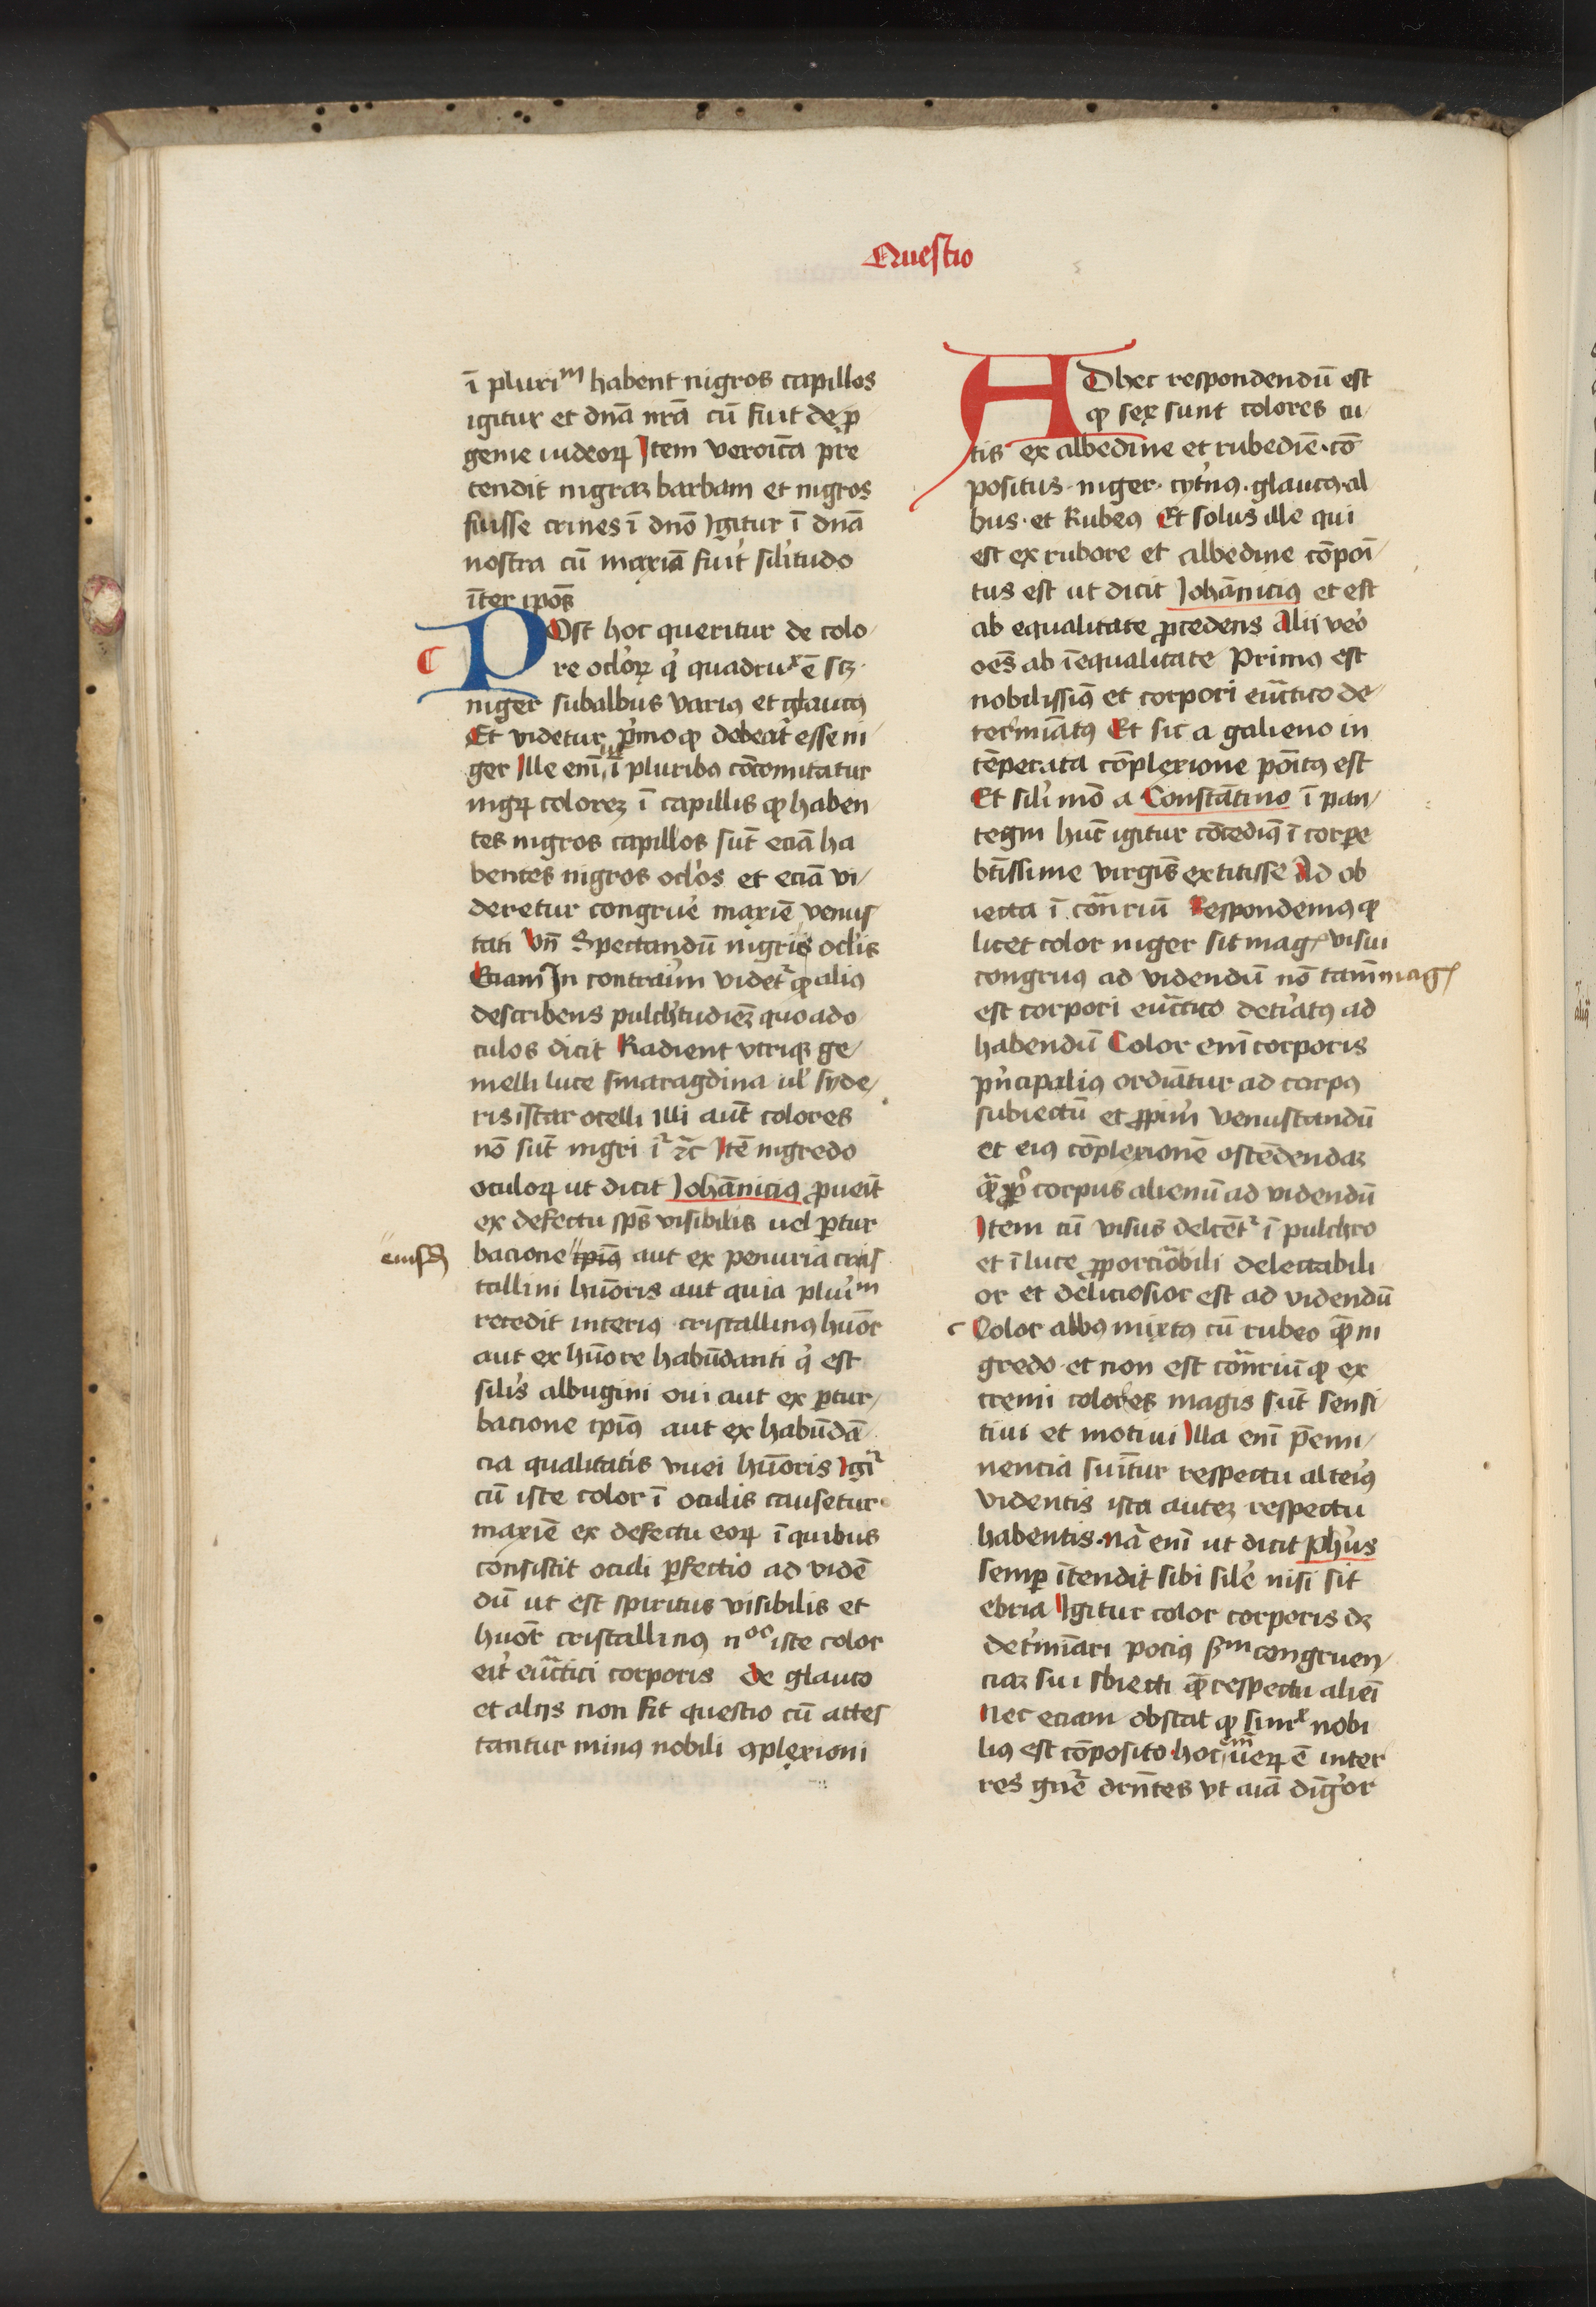 Questio
ī pluriᵐ habent nigros capillos
igitur et dnā nrā cū fuit de p̱
genie iudeoꝝ Item veroīca pre
tendit nigraꝫ barbam et nigros
fuisse crines ī dnō Igitur ī dnā
nostra cū maxīa fuit silitudo
īter ip̄os
POst hoc queritur de colo
re ocl'oꝝ q' quadruˣ ē scꝫ
niger subalbus variꝰ et glaucꝰ
Et videtur p'mo ꝙ debeat esse ni
ger Ille enī ī pluribꝰ cōcomitatur
nigꝝ coloreꝫ ī capillis ꝙ haben
tes nigros capillos sūt eciā ha
bentes nigros ocl'os et eciā vi
deretur congrue maxīe venus
tati Vn̄ Spectandū nigris ocl'is
Eciam In contraīum videt' ꝙ alius
describens pulch'tudineꝫ quo ad o
culos dicit Radient vtriqꝫ ge
melli luce smaragdina ul' syde
ris īstar ocelli Illi aut̄ colores
nō sūt nigri i' ⁊c̄ Itē nigredo
oculoꝝ ut dicit Johānicius ꝓueīt
ex defectu sp̄s visibilis uel ꝑtur
eiusdē
bacione ip̄iꝰ aut ex penuria cris
tallini hūoris aut quia pluriᵐ
recedit interiꝰ cristallinꝰ hūor
aut ex hūore habūdanti q' est
silis albugini oui aut ex ꝑtur
bacione ip̄iꝰ aut ex habūdā
cia qualitatis vuei hūoris Igi'
cū iste color ī oculis causetur
maxīe ex defectu eoꝝ ī quibus
consistit oculi ꝑfectio ad vidē
dū ut est spiritus visibilis et
hūor cristallinꝰ nᵒⁿ iste color
erit eucratici corporis De glauco
et aliis non fit questio cū attes
tantur minꝰ nobili ꝯplexioni
ADhec respondendū est
ꝙ sex sunt colores cu
tis ex albedine et rubedīe cō
positus niger cyt'nꝰ glaucꝰ al
bus et Rubeꝰ Et solus ille qui
est ex rubore et albedine cōpoī
tus est ut dicit Johānicius et est
ab equalitate ꝓcedens Alij vero
oēs ab īequalitate Primꝰ est
nobilissimꝰ et corpori eucratico de
termīatꝰ Et sic a galieno in
tēperata cōplexione poītꝰ est
Et sil'i mō a Constātino ī pan
tegni hūc igitur cōcedimꝰ ī corpore
btīssime virgīs extitisse Ad ob
iecta ī cōnriū Respondemꝰ ꝙ
licet color niger sit mag' visui
congruꝰ ad videndū nō tamē mag'
est corpori eucratico det'iatꝰ ad
habendū Color enī corporis
p'ncipaliꝰ ordīatur ad corpꝰ
subiectū et ꝓpriū venustandū
et eiꝰ cōplexionē ostēdendaꝫ
qā̄ ꝓp' corpus alienū ad videndū
Item cū visus delcēt' ī pulchro
et ī luce ꝓporcionabili delectabili
or et deliciosior est ad videndū
Color albꝰ mixtꝰ cū rubeo qā̄ ni
gredo et non est cōnriū ꝙ ex
tremi colores magis sūt sensi
tiui et motiui Illa enī p̄emi
nencia sumitur respectu alteiꝰ
videntis ista auteꝫ respectu
habentis nā enī ut dicit Ph'us
semꝑ ītendit sibi sil'e nisi sit
ebria Igitur color corporis dꝫ
det'mīari pociꝰ ßᵐ congruen
ciaꝫ sui sbiecti qā̄ respectu alieī
Nec eciam obstat ꝙ simˣ nobi
liꝰ est cōposito hoc enī ueꝝ ē inter
res gn'e drn̄tes vt aīa dīg'or